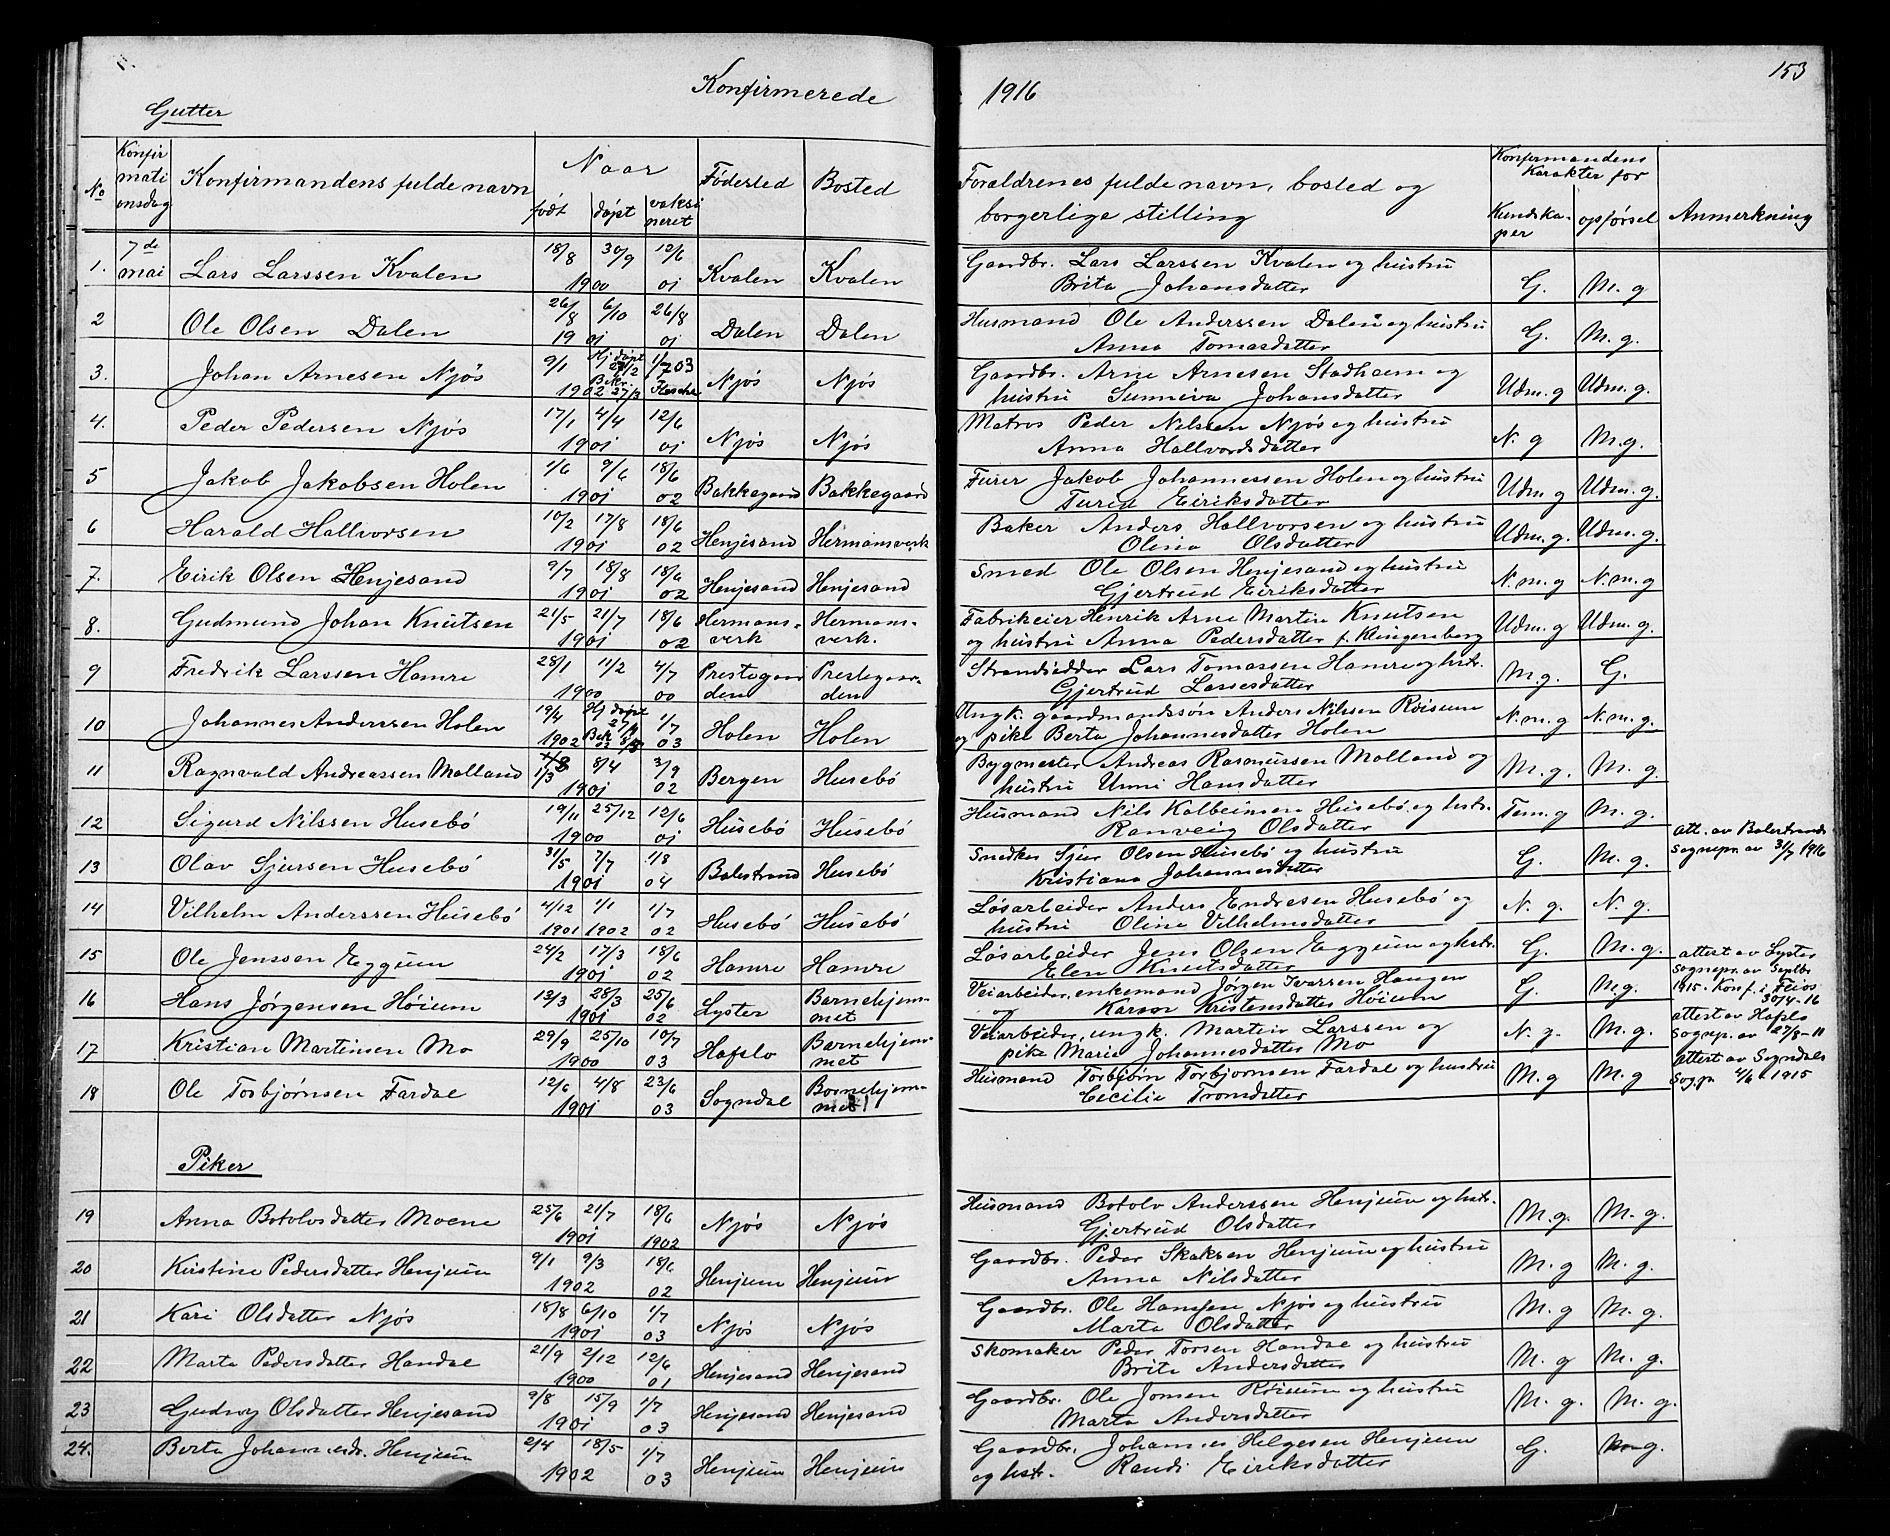 153
Konfirmerede 1916
Gutter
No
Konfir
mati
onsdag
Konfirmandens fulde navn
Naar
født
døpt
vaksi
neret
Fødested
Bosted
Forældrenes fulde navn, bosted og
borgerlige stilling
Konfirmandens
Karakter for
Kundska-
per
opførsel
Anmerkning
1. 7de mai Lars Larssen Kvalen 18/8 30/9 1900 12/6 01 Kvalen Kvalen Gaardbr. Lars Larssen Kvalen og hustru
Brita Johansdatter G. M. g
2 Ole Olsen Dalen 26/8 6/10 1901 26/8 01 Dalen Dalen Husmand Ole Anderssen Dalen og hustru
Anna Tomasdatter G. M. g.
3. Johan Arnesen Njøs 9/1 Hj døpt 1902 Bekr. 27/3 1/7 03 Njøs Njøs Gaardbr. Arne Arnesen Stadheim og
hustru Sunniva Johansdatter Udm. g Udm. g.
4. Peder Pedersen Njøs 17/1 4/4 1901 12/6 01 Njøs Njøs Matros Peder Nilssen Njøs og hustru
Anna Hallvordsdatter N. g M. g.
5 Jakob Jakobsen Holen 1/6 9/6 1901 18/6 02 Bakkegaard Bakkegaard Furer Jakob Johannessen Holen og hustru
Turid Eiriksdatter Udm. g Udm. g.
6 Harald Hallvorsen 10/2 17/8 1901 18/6 02 Henjesand Hermansverk Baker Anders Hallvorsen og hustru
Olina Olsdatter Udm. g. Udm. g.
7. Eirik Olsen Henjesand 9/7 18/8 1901 18/6 02 Henjesand Henjesand Smed Ole Olsen Henjesand og hustru
Gjertrud Eiriksdatter N. m. g N. m. g
8. Gudmund Johan Knutsen 21/5 21/7 1901 18/6 02 Hermans-
verk Hermans-
verk. Fabrikeier Henrik Arne Martin Knutsen
og hustru Anna Pedersdatter f. Klingenberg Udm. g Udm. g.
9 Fredrik Larssen Hamre 28/1 11/2 1900 4/7 00 Prestegaar
den Prestegaar-
den Strandsidder Lars Tomassen Hamre og hstr.
Gjertrud Lassesdatter M. g. G.
10 Johannes Anderssen Holen 19/4 1902 Hj døpt 27/4 1/7 03 Holen Holen Ungk. gaardmandssøn Anders Nilssen Røisum
og pike Berta Johannesdatter Holen N. m. g N. m. g.
11 Ragnvald Andreassen Molland 1/3 8/4 1901 3/9 02 Bergen Husebø Bygmester Andreas Rasmussen Molland og
hustru Unni Hansdatter M. g. M. g.
12 Sigurd Nilssen Husebø 19/11 25/12 1900 12/6 01 Husebø Husebø Husmand Nils Kolbeinsen Husebø og hstr.
Ranveig Olsdatter Tem. g M. g.
13 Olav Sjursen Husebø 31/5 7/7 1901 1/8 04 Balestrand Husebø Snedker Sjur Olsen Husebø og hustru
Kristiana Johannesdatter G. M. g. att. av Balestrands
sognepr. av 31/7 1916
14 Vilhelm Anderssen Husebø 4/12 1901 1/1 1902 1/7 02 Husebø Husebø Løsarbeider Anders Endresen Husebø og
hustru Oline Vilhelmsdatter N. g. N. g.
15 Ole Jenssen Eggum 24/2 17/3 1901 18/6 02 Hamre Hamre Løsarbeider Jens Olsen Eggum og hstr.
Elen Knutsdatter G. M. g.
16 Hans Jørgensen Høium 13/3 28/3 1901 25/6 02 Lyster Barnehjem-
met Veiarbeider, enkemand Jørgen Ivarsen Haugen
og Karsor Kristensdatter Høium G. M. g. attert av Lyster
sognepr. av Septbr
1915. Konf. i Feios
30/4-16
17 Kristian Martinsen Mo 29/9 25/10 1900 10/7 03 Hafslo Barnehjem-
met Veiarbeider, ungk. Martin Larssen og
pike Marie Johannesdatter Mo N. g. M. g. attert av Hafslo
sognep. av 27/8-11
18 Ole Torbjørnsen Fardal 12/6 4/8 1901 23/6 03 Sogndal Bornehjem-
met Husmand Torbjørn Torbjornsen Fardal og hustru
Cecilie Tromsdatter M. g M. g attert av Sogndals
sogp. 4/6 1915
Piker
19 Anna Botolvsdatter Moene 25/6 21/7 1901 18/6 1902 Njøs Njøs Husmand Botolv Anderssen Henjum og hstr.
Gjertrud Olsdatter M. g. M. g.
20 Kirstine Pedersdatter Henjum 9/1 9/3 1902 18/6 02 Henjum Henjum Gaardbr. Peder Skaksen Henjum og hustru
Anna Nilsdatter M. g M. g.
21 Kari Olsdatter Njøs 18/8 6/10 1901 1/7 03 Njøs Njøs Gaardbr. Ole Hanssen Njøs og hustru
Marta Olsdatter M. g M. g.
22 Marta Pedersdatter Handal 21/9 2/12 1900 12/6 01 Henjesand Henjesand Skomaker Peder Torsen Handal og hustru
Brite Andersdatter M. g M. g.
23 Gudvog Olsdatter Henjesand 9/8 15/9 1901 1/7 03 Henjesand Henjesand Gaardbr. Ole Jonsen Røisum og hustru
Marta Andersdatter M. g. M. g.
24. Berta Johannesdr. Henjum 2/4 18/5 1902 1/7 03 Henjum Henjum Gaardbr. Johannes Helgesen Henjum
og hst. Randi Eiriksdatter G. M. g.